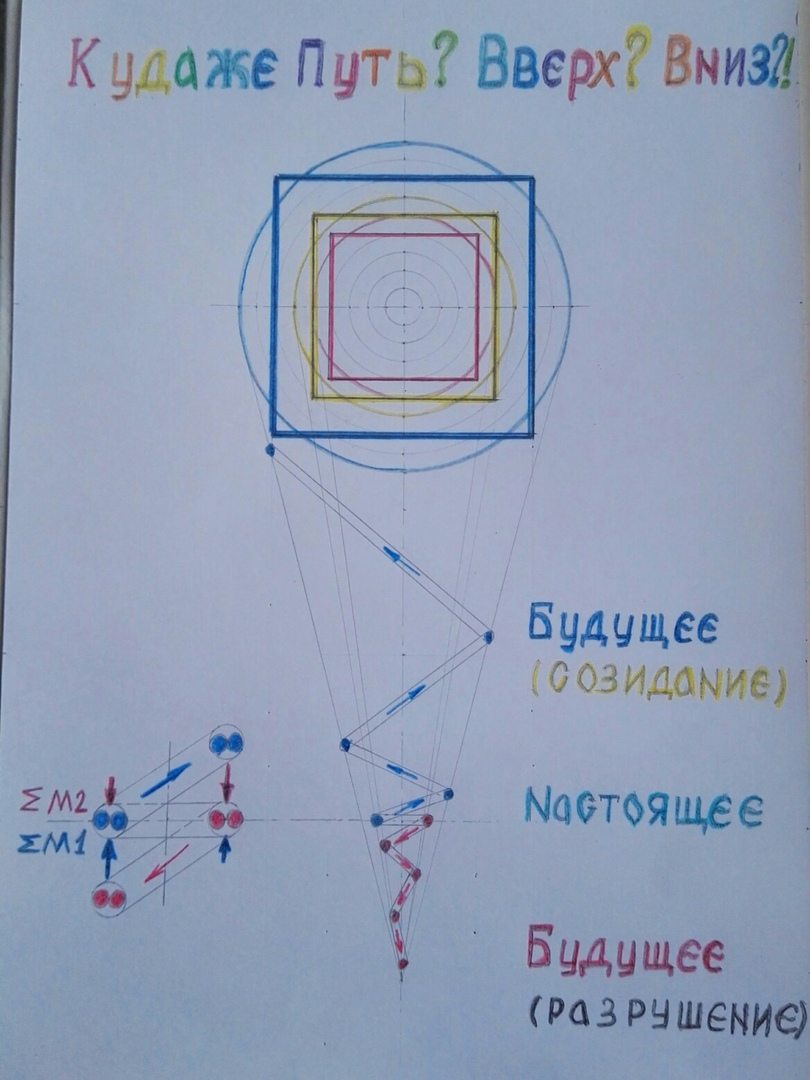 Кудаже Путь? Вверх? Вниз?!
Будущее
(созидание)
ΣМ2
Настоящее
ΣМ1
Будущее
(разрушение)